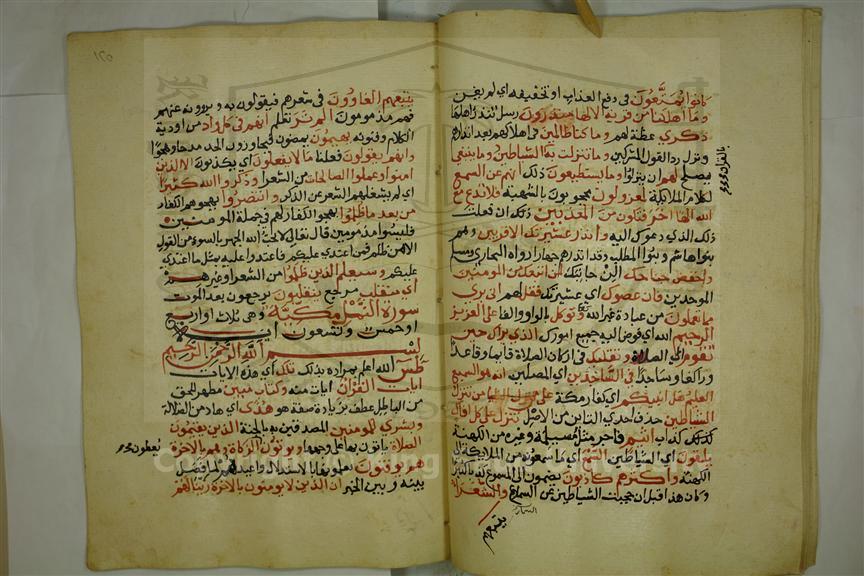 كانوا يمتعون في دفع العذاب او تخفيفه اي لم يغن
وما اهلكنا من قرية الا لها منذرون رسل تنذر اهلها
ذكرى عظة لهم وما كنا ظالمين في اهلاكهم بعد انذارهم
ونزل ردا لقول المشركين وما تنزلت به الشياطين وما ينبغي
يصلح لهم ان ينزلوا به وما يستطيعون ذلك انهم عن السمع
لكلام الملائكة لمعزولون محجوبون بالشهب فلا تدع مع
الله الها اخر فتكون من المعذبين ذلك ان فعلت
ذلك الذي دعوك اليه وانذر عشيرتك الاقربين وهم
بنوا هاشم وبنوا المطلب وقد انذرهم جهارا رواه البخاري ومسلم
واخفض جناحك الن جانبك لمن اتبعك من المومنين
الموحدين فان عصوك اي عشيرتك فقل لهم اني بري
مما تعملون من عبادة غير الله وتوكل بالواو والفا على العزيز
الرحيم الله اي فوض اليه جميع امورك الذي يراك حين
تقوم الى الصلاة وتقلبك في اركان الصلاة قائما وقاعدا
وراكعا وساجدا في الساجدين اي المصلين انه هو السميع
العليم هل انبئكم اي كفار مكة على من تنزل
الشياطين حذف احدى التائين من الاصل تنزل على كل افاك
كذاب اثيم فاجر مثل مسيلمة وغيره من الكهنة
يلقون اي الشياطين السمع اي ما سمعوه من الملائكة الى
الكهنة واكثرهم كاذبون يضمون الى المسموع كذبا كثيرا
وكان هذا قبل ان حجبت الشياطين عن السماء والشعراء
يتبعهم
١٢٥
يتبعهم الغاوون في شعرهم فيقولون به ويروونه عنهم
فهم مذمومون الم تر تعلم انهم في كل واد من اودية
الكلام وفنونه يهيمون يمضون فيجاوزون الحد مدحا وهجوا
وانهم يقولون فعلنا ما لا يفعلون اي يكذبون الا الذين
امنوا وعملوا الصالحات من الشعرا وذكروا الله كثيرا
اي لم يشغلهم الشعر عن الذكر وانتصروا بهجوهم الكفار
من بعد ما ظلموا بهجو الكفار لهم في جملة المومنين
فليسوا مذمومين قال تعالى لا يحب الله الجهر بالسوء من القول
الا من ظلم فمن اعتدى عليكم فاعتدوا عليه بمثل ما اعتدى
عليكم وسيعلم الذين ظلموا من الشعرا وغيرهم
اي منقلب مرجع ينقلبون يرجعون بعد الموت
سورة النمل مكية وهي ثلاث او اربع
او خمس وتسعون اية
بسم الله الرحمن الرحيم
طس الله اعلم بمراده بذلك تلك اي هذه الايات
ايات القران ايات منه وكتاب مبين مظهر للحق
من الباطل عطف بزيادة صفة هو هدى اي هاد من الضلالة
وبشرى للمومنين المصدقين به بالجنة الذين يقيمون
الصلاة ياتون بها على وجهها ويوتون الزكاة وهم بالاخرة
هم يوقنون يعلمونها بالاستدلال واعيد هم لما فصل
بينه وبين الخبر ان الذين لا يومنون بالاخرة زينا لهم
يعطون